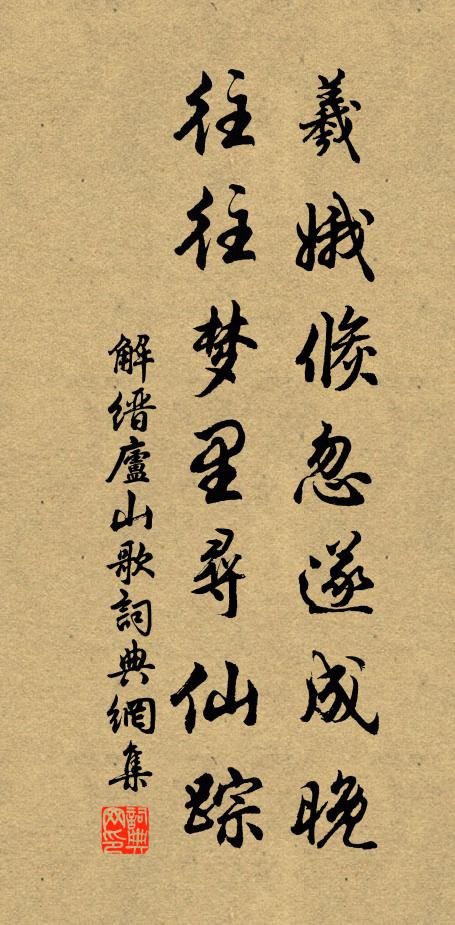 羲娥倏忽遂成晚
往往梦里尋仙踪
解缙廬山歌詞典網集
詞典網印